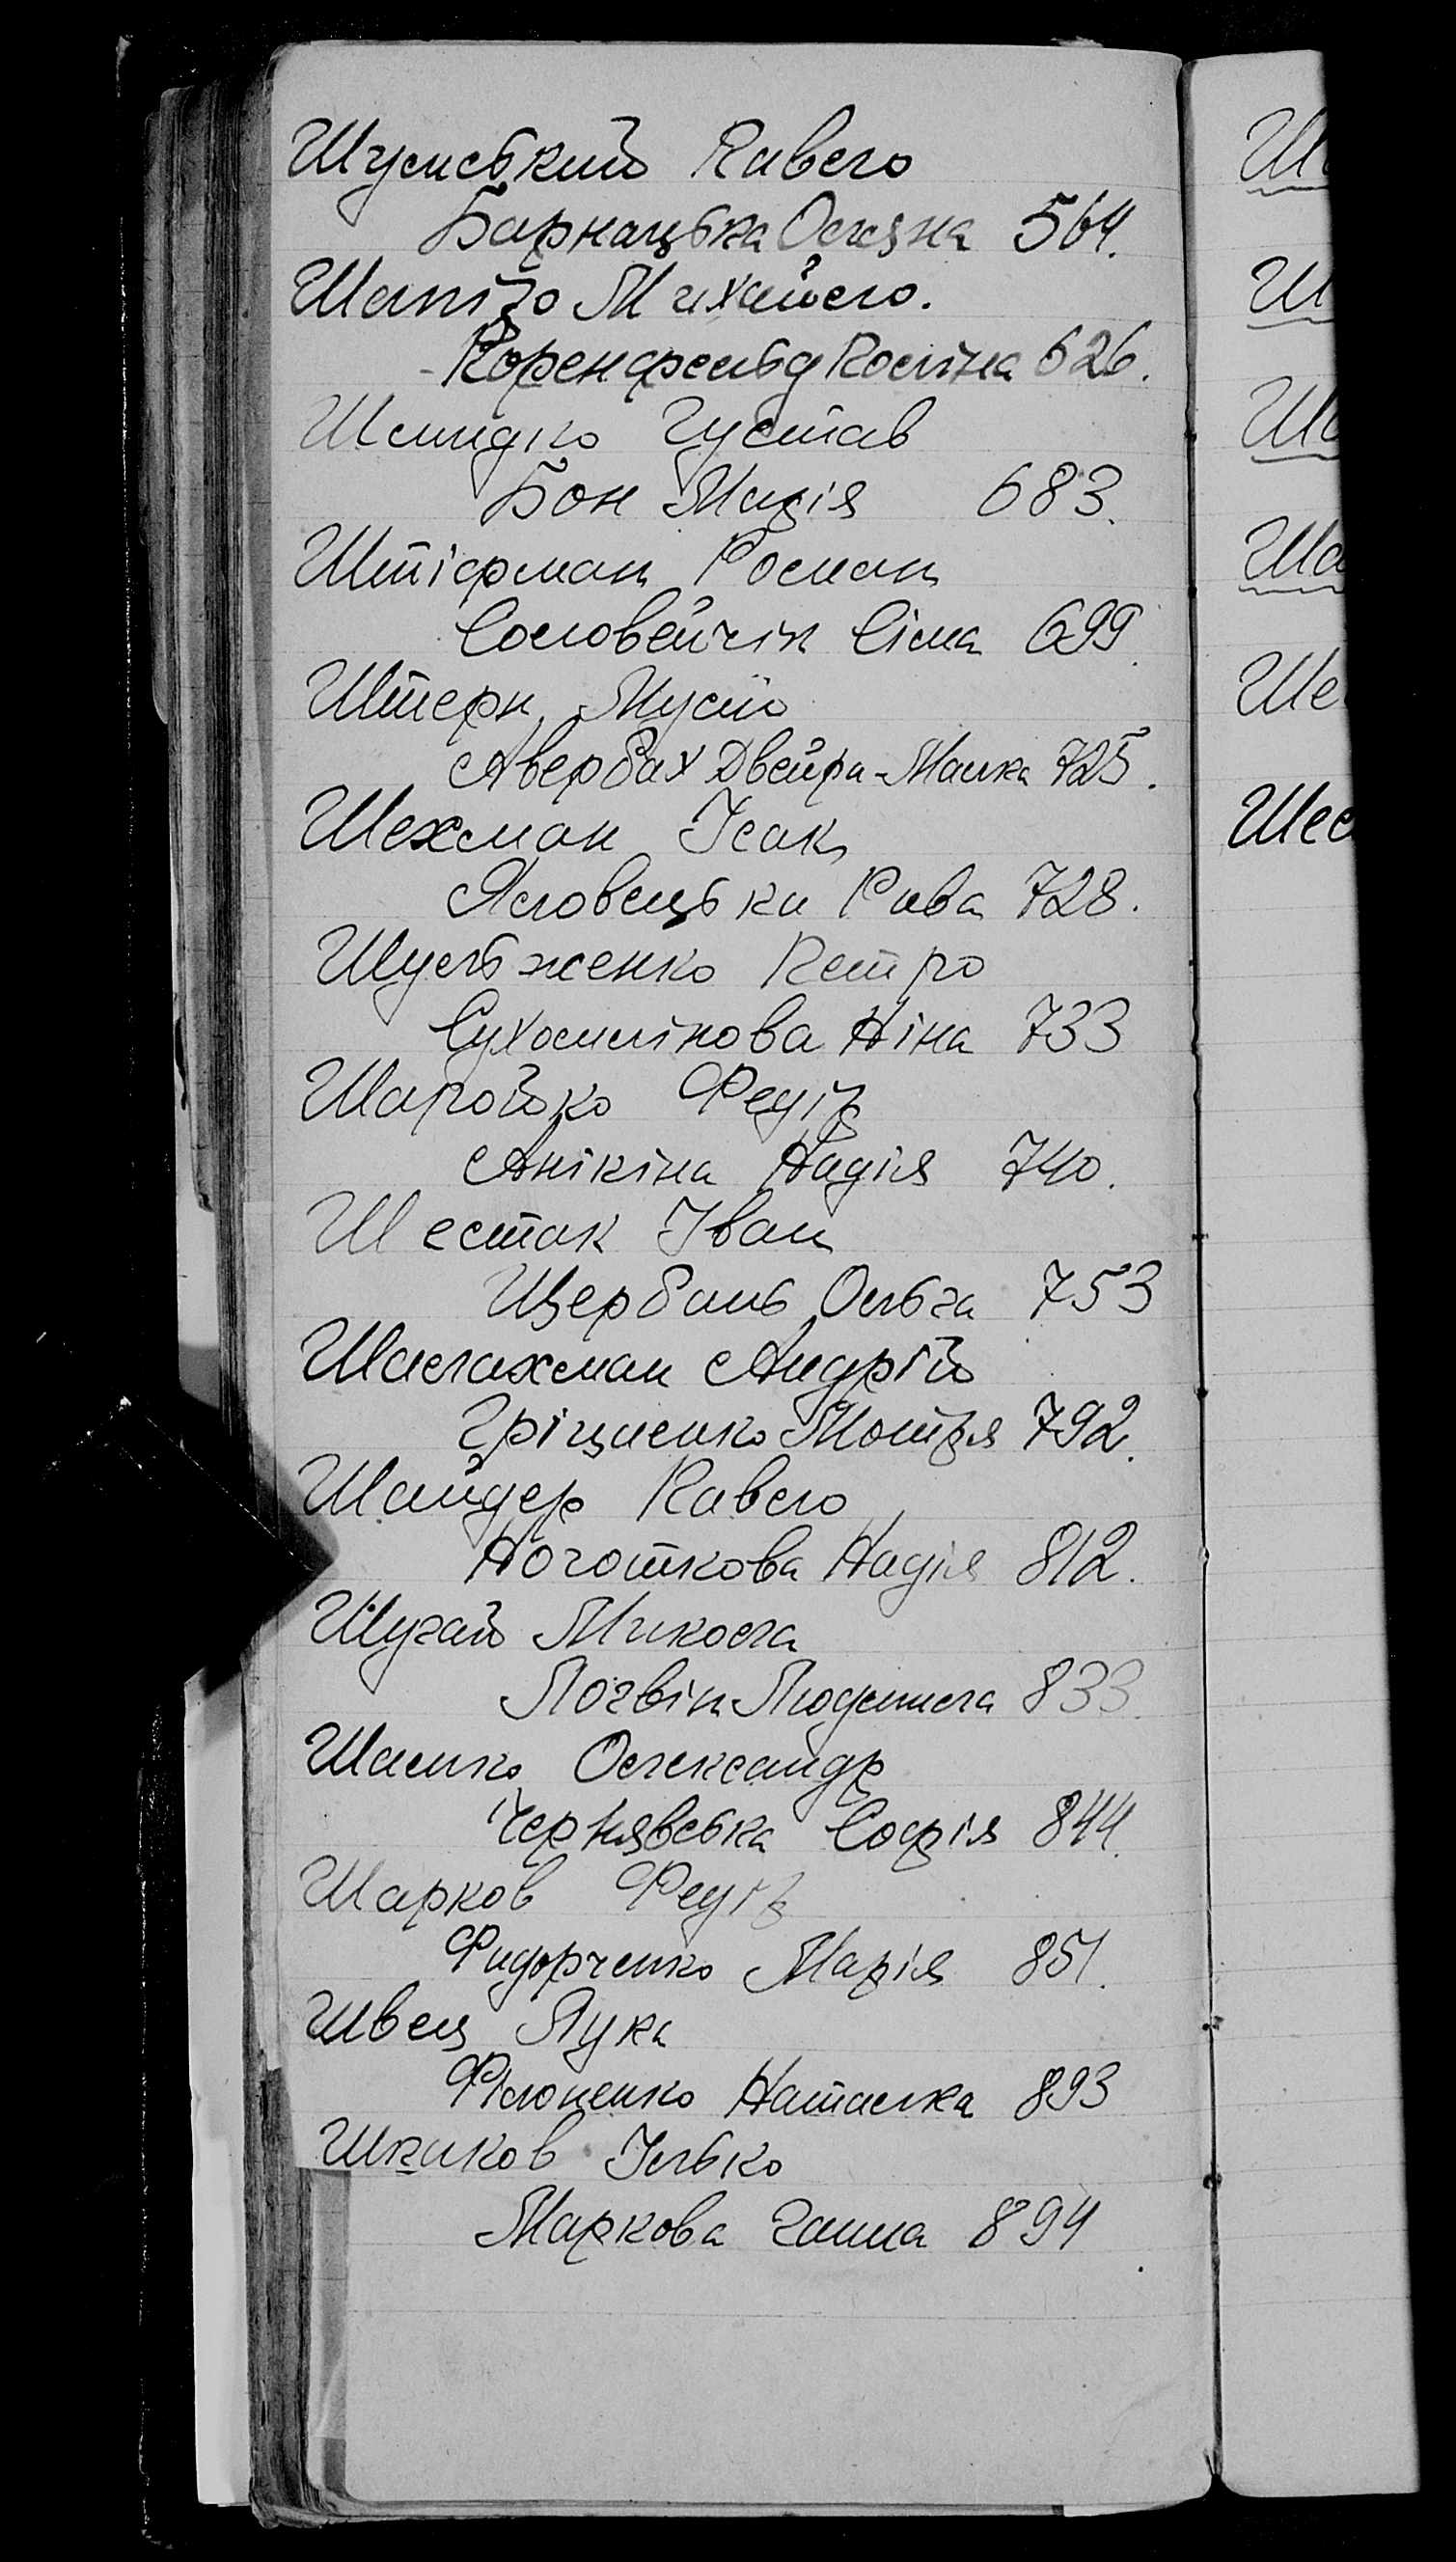 Шумський Павло
Барнацька Олена 564.
Шапіро Михайло.
Коренфельд Поліна 626.
Шмидко Густав
Бон Марія 683.
Штіфман Роман
Соловейчік Сіма 699.
Штерн Мусій
Авербах Двейра-Малка 725.
Шехман Ісак
Ясловецька Рива 728.
Шульженко Петро
Сухомлінова Ніна 733
Шаройко Федір
Анікіна Надія 740.
Шестак Іван
Щербань Ольга 753
Шалахман Андрій
Гріценко Мотря 792.
Шайдер Павло
Ноготкова Надія 812.
Шугай Микола
Логвін Людмила 833.
Шамко Олександр
Чернявська Софія 844.
Шарков Федір
Фидорченко Марія 851.
Швец Лука
Філоненко Наталка 893
Шкиков Ілько
Маркова Ганна 894
Ше
Шес